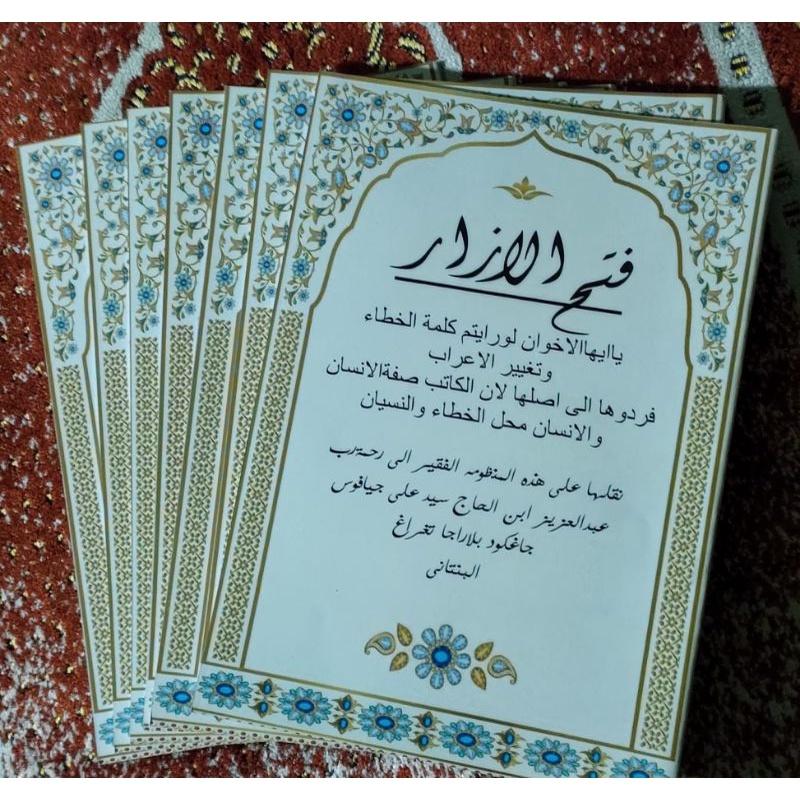 فتح الازار
ياايهاالاخوان لورايتم كلمة الخطاء
وتغيير الاعراب
فردوها الى اصلها لان الكاتب صفةالانسان
والانسان محل الخطاء والنسيان
نقلها على هذه المنظومه الفقير الى رحمةرب
عبدالعزيز ابن الحاج سيد على جيافوس
جاغكود بلاراجا تغراغ
البنتانى